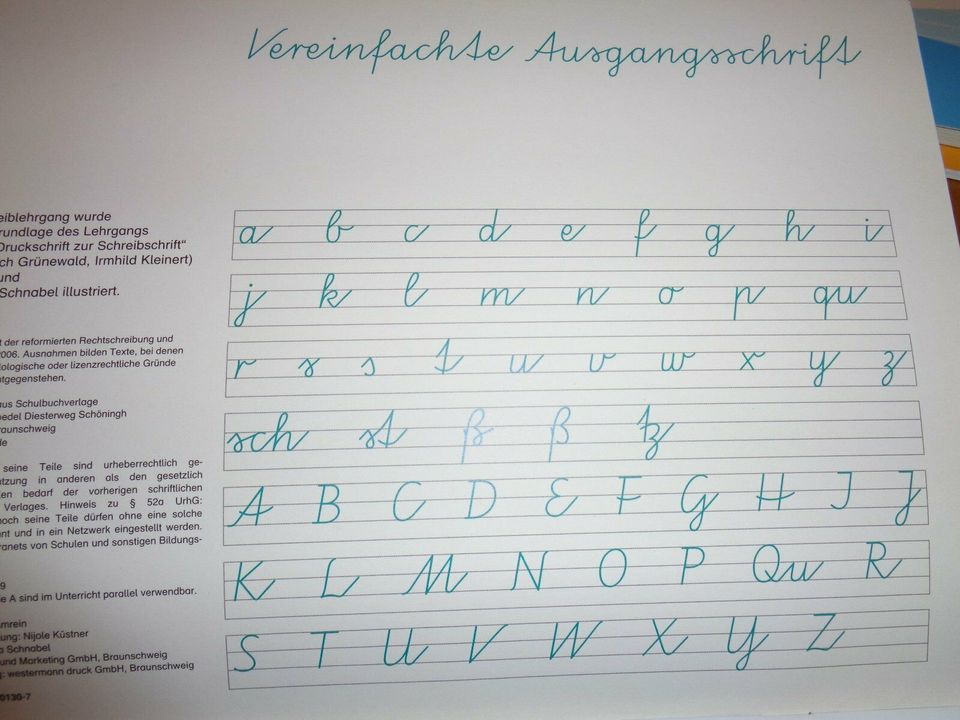 Vereinfachte Ausgangsschrift
a b c d e f g h i
j k l m n o p qu
r s s t u v w x y z
sch st ß ß tz
A B C D E F G H I J
K L M N O P Qu R
S T U V W X Y Z
eiblehrgang wurde
rundlage des Lehrgangs
Druckschrift zur Schreibschrift“
ch Grünewald, Irmhild Kleinert)
und
Schnabel illustriert.
t der reformierten Rechtschreibung und
2006. Ausnahmen bilden Texte, bei denen
ologische oder lizenzrechtliche Gründe
ntgegenstehen.
aus Schulbuchverlage
oedel Diesterweg Schöningh
raunschweig
de
seine Teile sind urheberrechtlich ge-
utzung in anderen als den gesetzlich
len bedarf der vorherigen schriftlichen
Verlages. Hinweis zu § 52a UrhG:
noch seine Teile dürfen ohne eine solche
nnt und in ein Netzwerk eingestellt werden.
tranets von Schulen und sonstigen Bildungs-
g
e A sind im Unterricht parallel verwendbar.
mrein
ung: Nijole Küstner
a Schnabel
und Marketing GmbH, Braunschweig
g: westermann druck GmbH, Braunschweig
0130-7